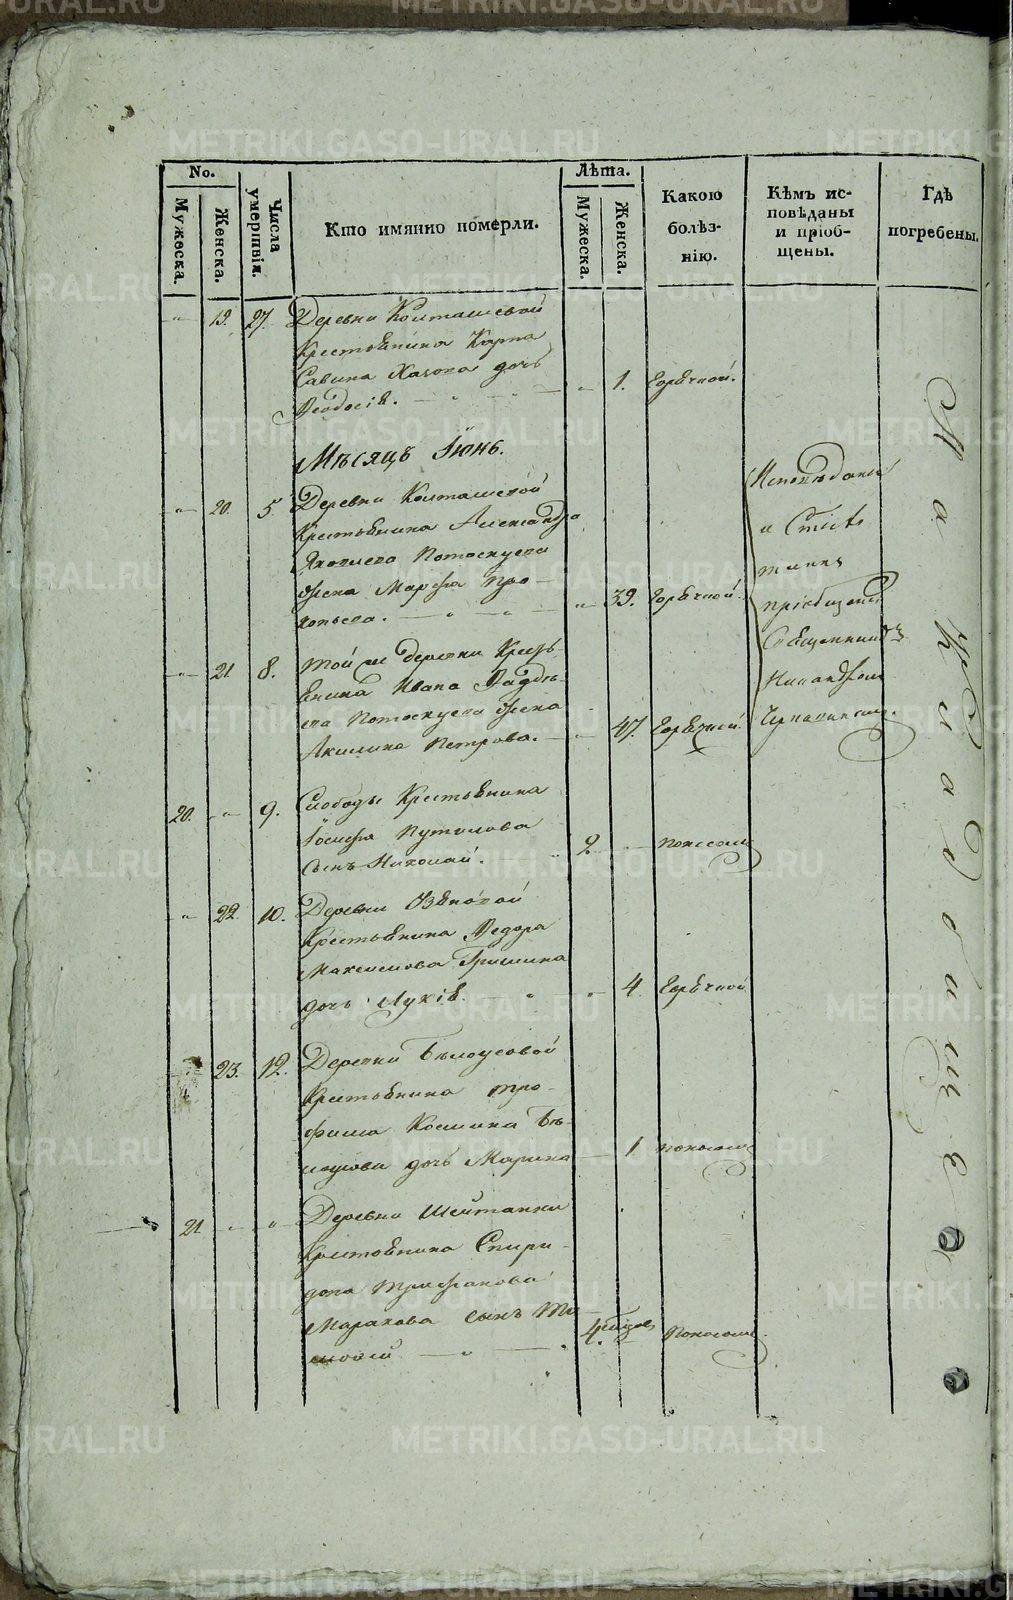 No.
Мужеска.
Женска.
Числа умертвія.
Кто имянно померли.
Лѣта.
Мужеска.
Женска.
Какою болѣз-нію.
Кѣмъ ис-повѣданы и пріоб-щены.
Гдѣ погребены.
19. 27. Деревни Колташевой
Крестьянина Карпа
Савина дочь
Ѳеодосія. 1. Горячкой.
Мѣсяцъ Іюнь.
20. 5. Деревни Колташевой
Крестьянина Александра
Яковлева Потоскуева
жена Марфа Про-
копьева. 39. Горячкой.
Исповѣданы
и Святѣ
таинъ
пріобщены
Священникомъ
Никандром
21. 8. Той же деревни Кресть-
янина Ивана Ѳаддѣ-
ева Потоскуева жена
Акилина Петрова. 47. Горячкой
20. 9. Слободы Крестьянина
Іосифа Путилова
сынъ Николай. 2. поносомъ
22. 10. Деревни
Крестьянина Ѳедора
Максимова Гришина
дочь Лукія. 4. Горячкой
23. 12. Деревни Бѣлоусовой
Крестьянина Тро-
фима Космина Бѣ-
лоусова дочь Марина 1 поносомъ
21. Деревни Шайтанки
Крестьянина Спири-
дона Трифанова
сынъ Ти-
мофей 4. мѣсяцов поносомъ
На кладбищѣ
METRIKI.GASO-URAL.RU